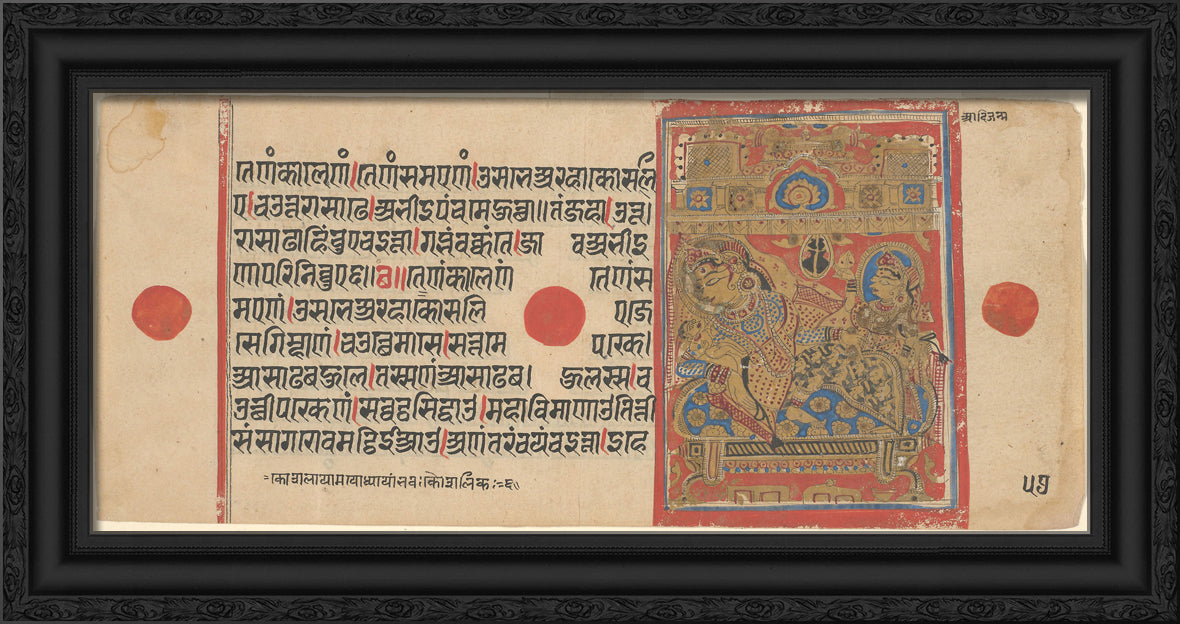 तेणं कालेणं।तेणं समएणं।उसभे अरहा कोसलि
ए।चउउत्तरासाढे।अभीइपंचमे हुत्था॥तं जहा।उत्त।
रासाढाहिं चुए चइत्ता।गब्भं वक्कंते।जा व अभीइ
णा परिनिव्वुए॥छ॥तेणं कालेणं तेणं स
मएणं।उसभे अरहा कोसलि ए।जे
से गिम्हाणं।चउत्थे मासे।सत्तमे पक्खे।
आसाढबहुले।तस्स णं आसाढब। हुलस्स।च
उत्थीपक्खेणं।सव्वट्ठसिद्धाउ।महाविमाणाउ तित्ती
सं सागरोवमट्ठिईआउ।अणंतरं चयं चइत्ता।इहे
आदिजन्म
५७